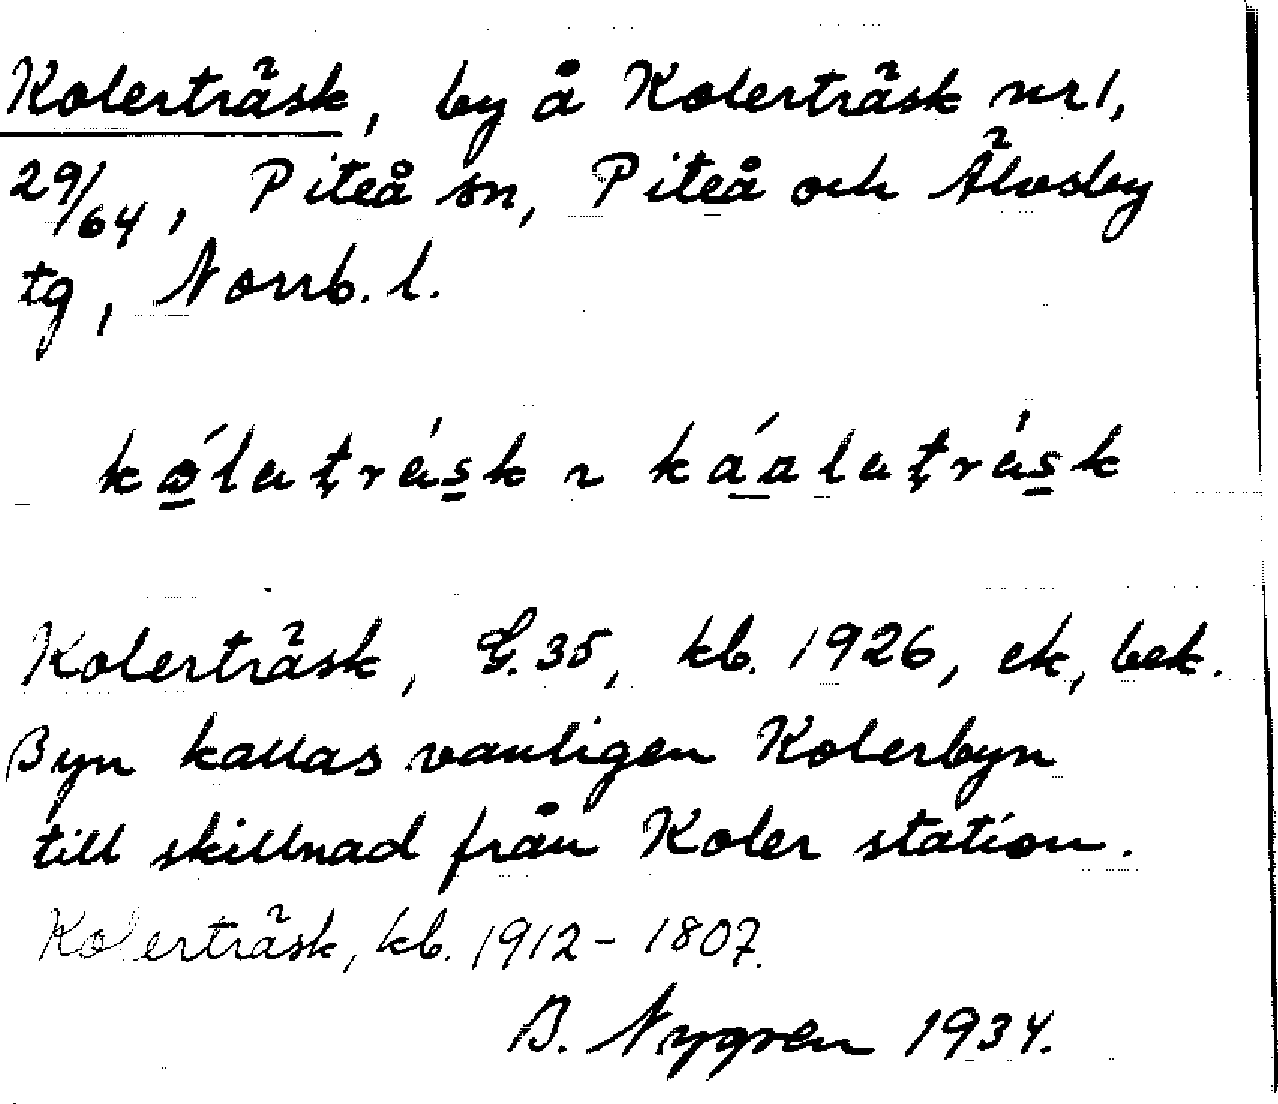 Kolerträsk, by å Kolerträsk nr 1,
29/64, Piteå sn, Piteå och Älvsby
tg, Norrb. l.
Kolerträsk, G. 35, kb. 1926, ek, bek.
Byn kallas vanligen Kolerbyn
till skillnad från Koler station.
Kolerträsk, kb. 1912 - 1807.
B. Nygren 1934.